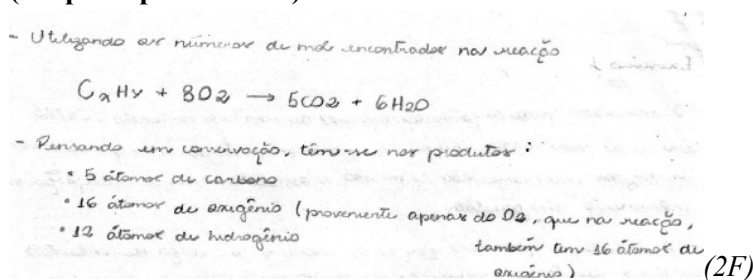 - Utilizando os números de mols encontrados na reacção
CxHy + 8O2 → 5CO2 + 6H2O
- Pensando em conservação, têm-se nos produtos :
• 5 átomos de carbono
• 16 átomos de oxigênio (proveniente apenas do O2, que na reacção,
também tem 16 átomos de
oxigênio)
• 12 átomos de hidrogênio
(2F)